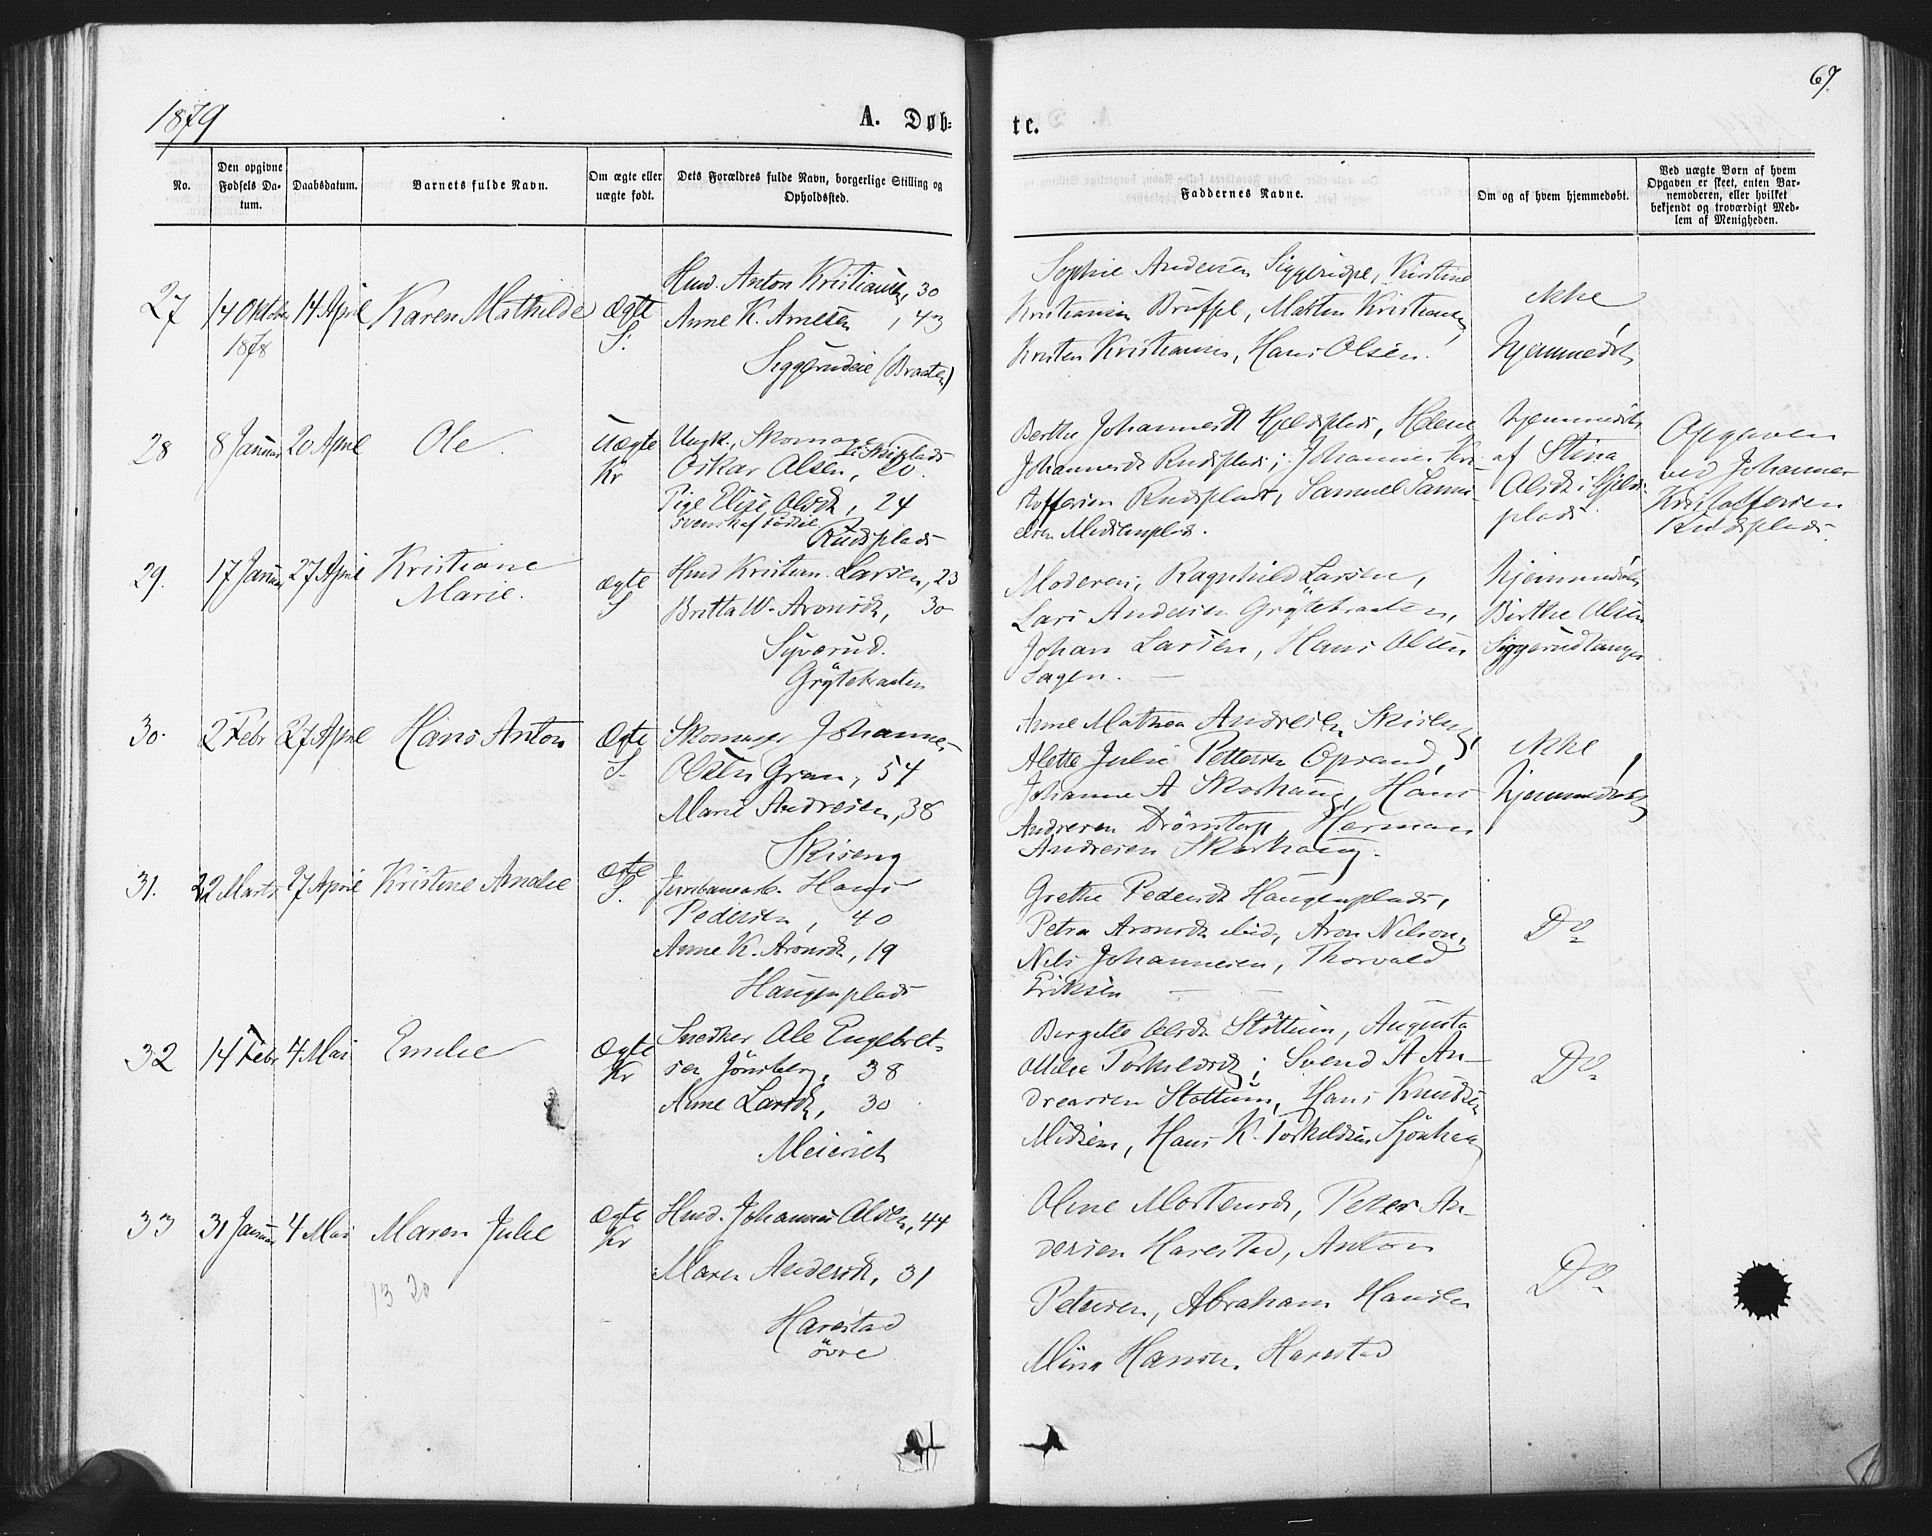 1879
A. Døb-
te.
67.
No.
Den opgivne Fødsels Da-tum.
Daabsdatum.
Barnets fulde Navn.
Om ægte eller uægte født.
Dets Forældres fulde Navn, borgerlige Stilling og Opholdssted.
Faddernes Navne.
Om og af hvem hjemmedøbt.
Ved uægte Børn af hvem Opgaven er skeet, enten Bar-nemoderen, eller hvilket bekjendt og troværdigt Med-lem af Menigheden.
27
14 Oktober
1878
14 April
Karen Mathilde
ægte
S.
Hmd. Anton Kristiansen, 30
Anne K. Arnesen, 43
Siggerudeie (Braaten)
Sophie Andersen Siggerudpl, Kristine
Kristiansen, Martin Kristiansen,
Kristen Kristiansen, Hans Olsen.
ikke
hjemmedøbt
28
8 Januar
20 April
Ole
uægte
Kr
Ungk., Skomager
Oskar Olsen, 20.
Pige Elise Olsdt, 24
svensk af Fødsel
Rudsplads
Berthe Johannesdt Hjelsplads, Helene
Johannesdt Rudsplads; Johannes Kri-
stoffersen Rudsplads, Samuel Samu-
elsen Midsemplads.
hjemmedøbt
af Stina
Olsdt i Hjels-
plads.
Opgaven
ved Johannes
Kristoffersen
Rudsplads.
29.
17 Januar
27 April
Kristiane
Marie.
ægte
S
Hmd Kristian Larsen, 23
Britta W. Aronsdt, 30
Syverud.
Grytebraaten
Moderen, Ragnhild Larsen,
Lars Andersen Grytebraaten,
Johan Larsen, Hans Olsen
Sagen.
hjemmedøbt
Berthe Olsen
Siggerudtangen
30.
2 Febr
27 April
Hans Anton
Ægte
S.
Skomager Johannes
Olsen Gran, 54
Marie Andresen, 38
Skiseng
Anne Mathea Andresen Skiseng,
Alette Julie Pettersen Opsand,
Johanne A Skorhaug, Hans
Andresen Drømtorp, Herman
Andresen Skorhaug.
ikke
hjemmedøbt
31.
22 Marts
27 April
Kristine Amalie
ægte
S.
Jernbanearb. Hans
Pedersen, 40
Anne K. Aronsdt, 19
Haugenplads
Grethe Pedersdt Haugenplads,
Petra Aronsdt ibid, Aron Nilson,
Nils Johannesen, Thorvald
Eriksen
Do
32
14 Febr
4 Mai
Emilie
Ægte
Kr
Snedker Ole Engebret-
sen Jønsberg, 38
Anne Larsdt, 30
Meieriet
Bergitte Olsdt Støttum, Augusta
Otilie Torkildsdt; Svend A An-
dreassen Støttum, Hans Knudsen
Midsem, Hans K. Torkildsen
Do
33
31 Januar
4 Mai
Maren Julie
Ægte
Kr
Hmd. Johannes Olsen, 44
Maren Andersdt, 31
Harestad
øvre
Oline Mortensdt, Peter An-
dersen Harestad, Anton
Petersen, Abraham Hansen
Mina Hansen, Harestad
Do
13 20